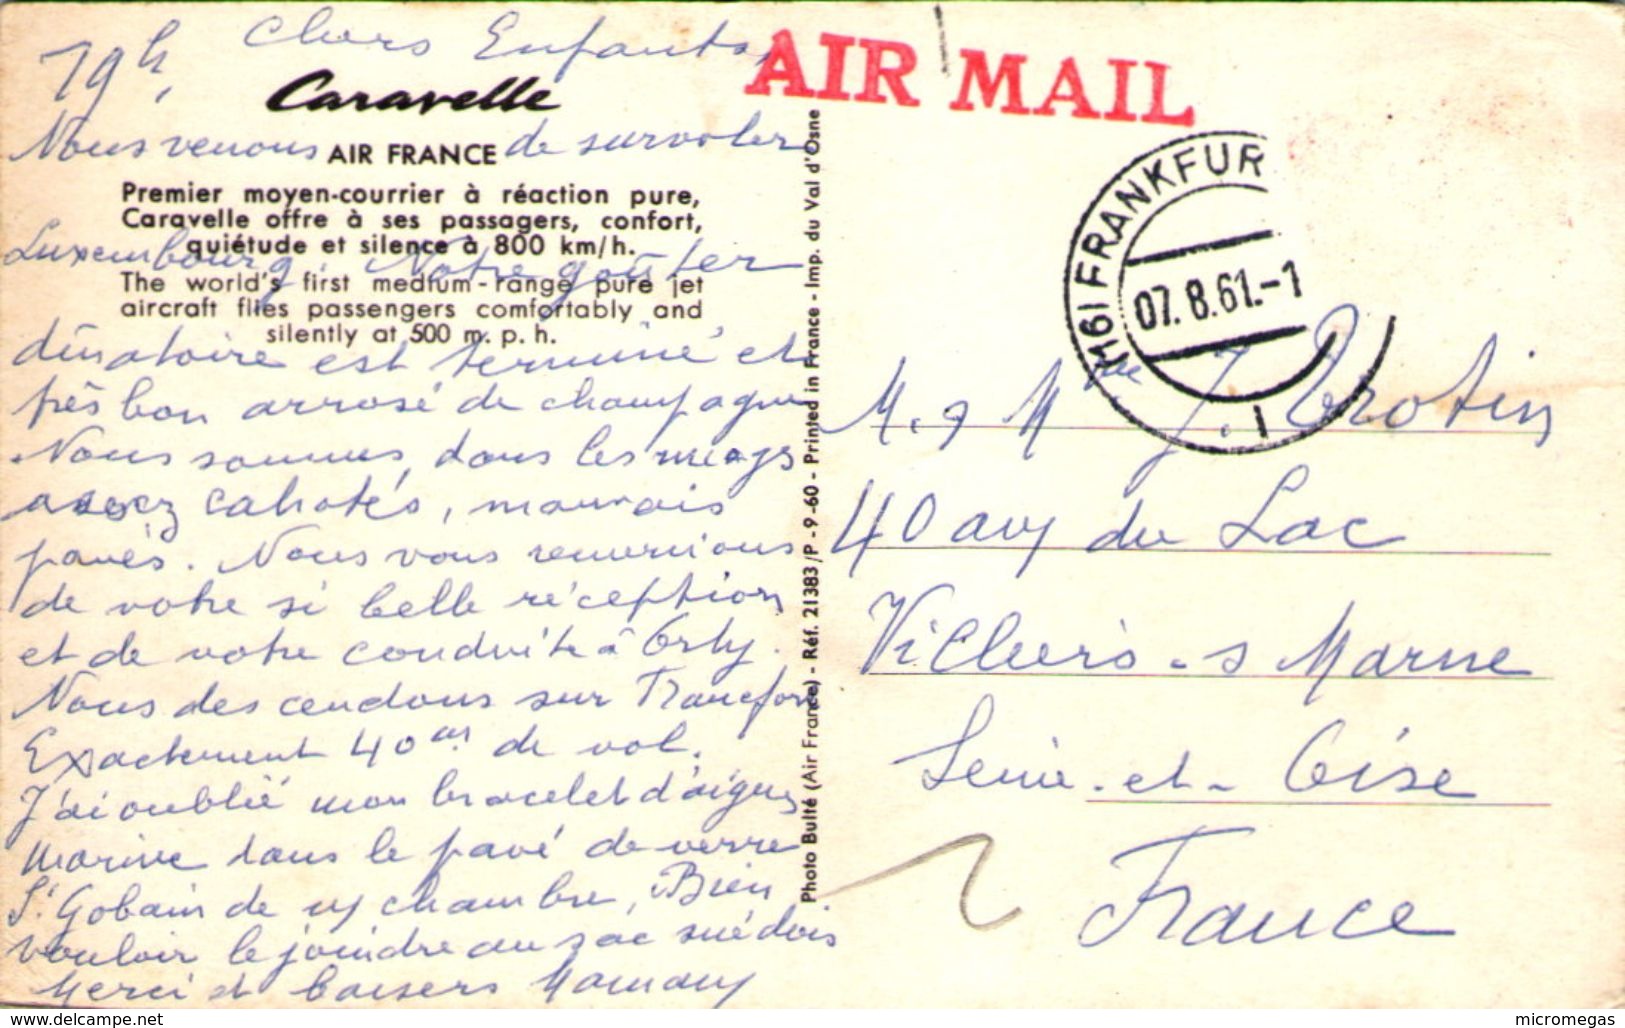 19h,
Chers Enfants,
Caravelle
Nous venons de survoler
AIR FRANCE
Premier moyen-courrier à réaction pure,
Caravelle offre à ses passagers, confort,
quiétude et silence à 800 km/h.
Luxembourg. Notre goûter
The world's first medium-range pure jet
aircraft flies passengers comfortably and
silently at 500 m. p. h.
dinatoire est terminé et
très bon arrosé de champagne
Nous sommes dans les nuages
assez cahotés, mauvais
pavés. Nous vous remercions
de votre si belle réception
et de votre conduite à Orly.
Nous descendons sur Francfort
Exactement 40 de vol.
J'ai oublié mon bracelet d'aigues
marine dans le pavé de verre
St Gobain de ma chambre, Bien
vouloir le joindre au sac suédois
Merci et baisers Mamany
Photo Bulté (Air France) - Réf. 21383/P - 9-60 - Printed in France - Imp. du Val d'Osne
AIR MAIL
(16) FRANKFUR
07.8.61.-1
1
M. & Mme J. Trotin
40 av du Lac
Villiers-s Marne
Seine-et-Oise
France
www.delcampe.net
micromegas